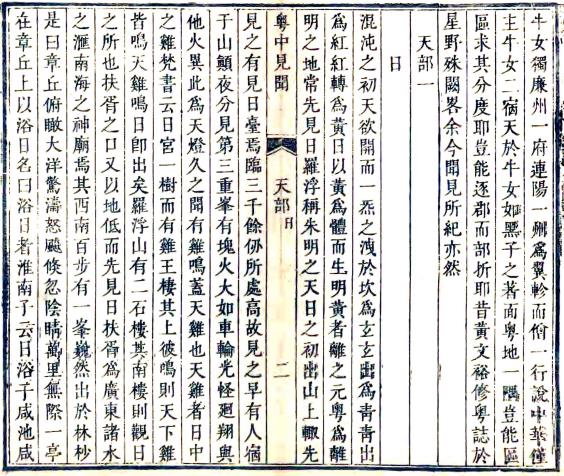 牛女獨廉州一府連陽一州為翼軫而僧一行說中華僅
主牛女二宿天於牛女如黑子之著面粵地一隅豈能區
區求其分度耶豈能逐郡而部折耶昔黃文裕修粵誌於
星野殊闕畧余今聞見所紀亦然
天部一
日
混沌之初天欲開而一炁之洩於坎為玄玄出為靑靑出
為紅紅轉為黃日以黃為體而生明黃者離之元粵為離
明之地常先見日羅浮稱朱明之天日之初出山上輒先
粵中見聞
天部 日
二
見之有見日臺焉臨三千餘仞所處高故見之早有人宿
于山顛夜分見第三重峯有塊火大如車輪光怪廻翔與
他火異此為天燈久之聞有雞鳴蓋天雞也天雞者日中
之雞梵書云日宮一樹而有雞王棲其上彼鳴則天下雞
皆鳴天雞鳴日卽出矣羅浮山有二石樓其南樓則觀日
之所也扶胥之口又以地低而先見日扶胥為廣東諸水
之滙南海之神廟焉其西南百步有一峯巍然出於林杪
是曰章丘俯瞰大洋驚濤怒飈倏忽陰晴萬里無際一亭
在章丘上以浴日名曰浴日者淮南子云日浴于咸池咸